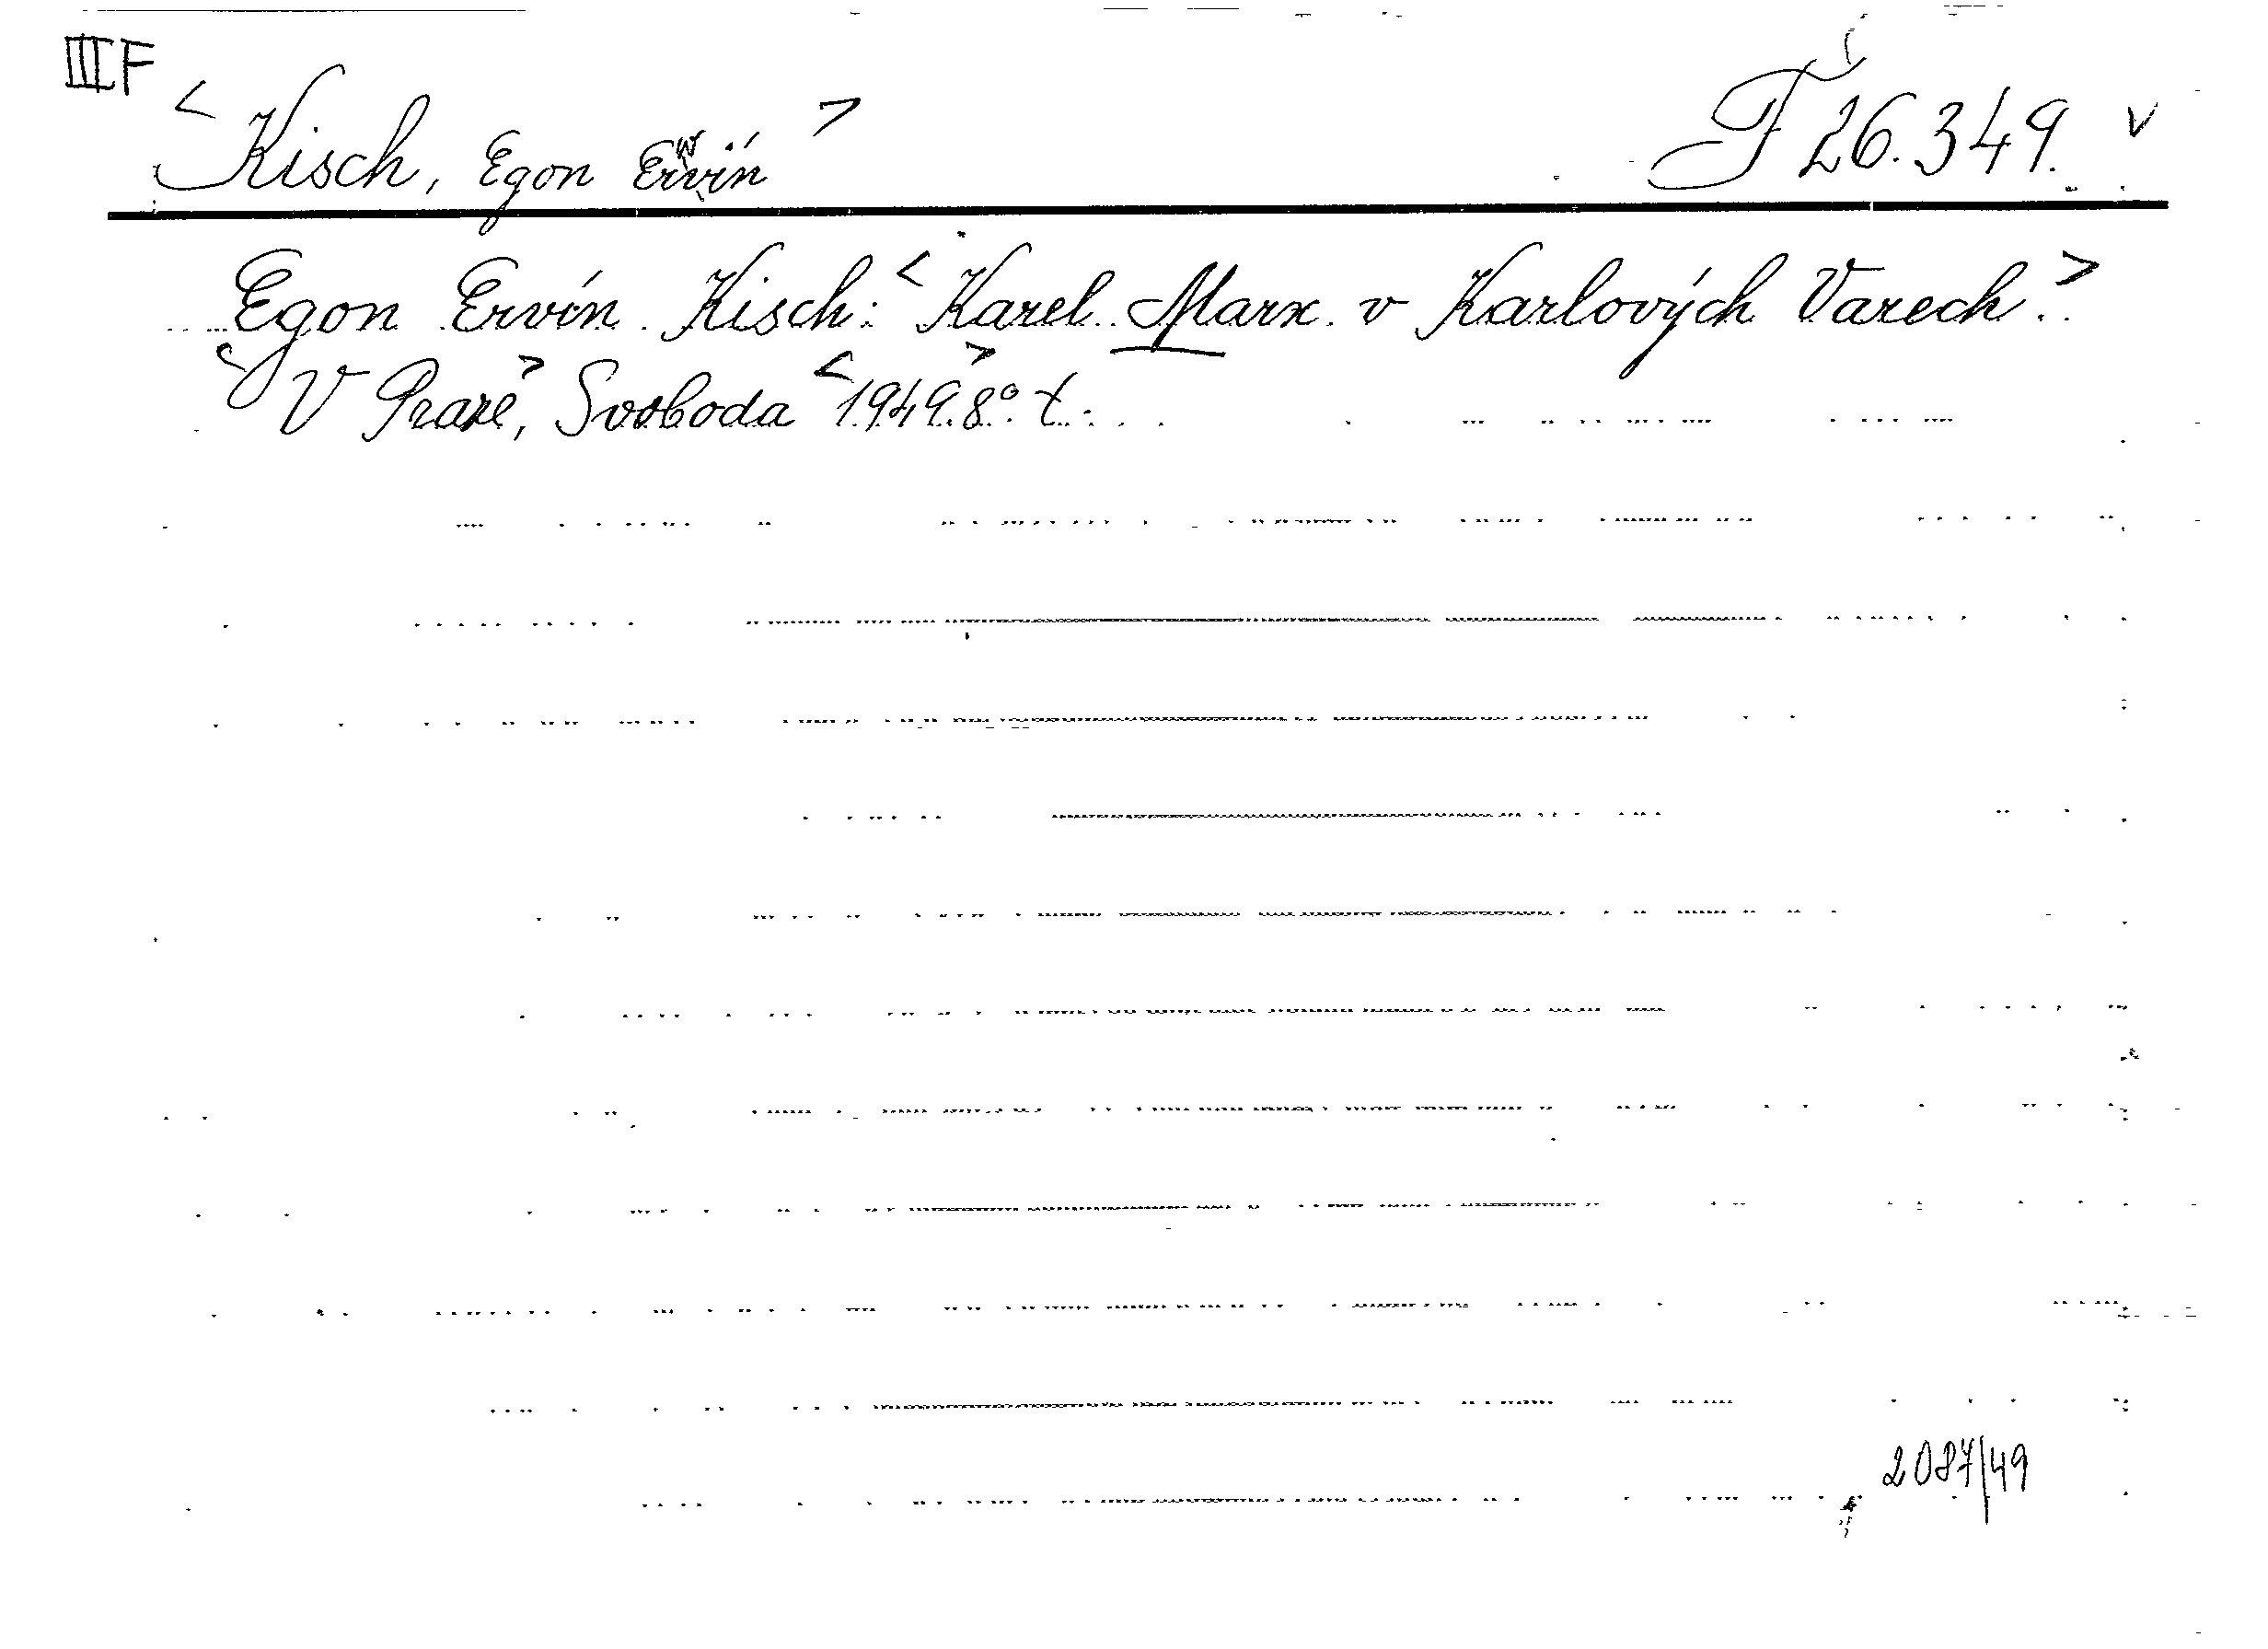 III F
< Kisch, Egon Ervín > F 26.349. v
w
Egon Ervín Kisch: < Karel Marx v Karlových Varech. >
< V Praze >, Svoboda < 1949. > 8°. t.
2087/49